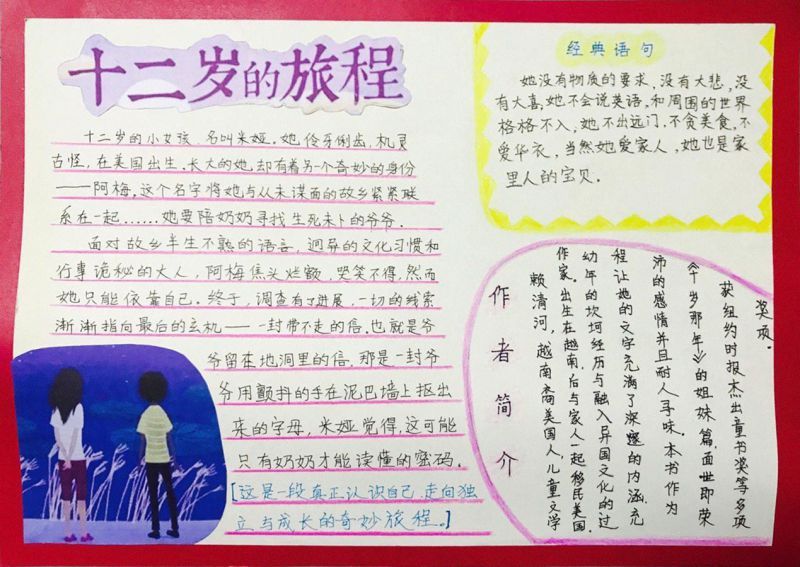 十二岁的旅程
十二岁的小女孩，名叫米娅。她伶牙俐齿，机灵
古怪，在美国出生、长大的她，却有着另一个奇妙的身份
——阿梅，这个名字将她与从未谋面的故乡紧紧联
系在一起……她要陪奶奶寻找生死未卜的爷爷．
面对故乡半生不熟的语言，迥异的文化习惯和
行事诡秘的大人，阿梅焦头烂额，哭笑不得，然而
她只能依靠自己。终于，调查有了进展，一切的线索
渐渐指向最后的玄机——一封带不走的信，也就是爷
爷留在地洞里的信．那是一封爷
爷用颤抖的手在泥巴墙上抠出
来的字母，米娅觉得，这可能
只有奶奶才能读懂的密码．
[这是一段真正认识自己、走向独
立与成长的奇妙旅程。]
经典语句
她没有物质的要求，没有大悲，没
有大喜，她不会说英语，和周围的世界
格格不入，她不出远门，不贪美食，不
爱华衣，当然她爱家人，她也是家
里人的宝贝．
作者简介
赖清河，越南裔美国人，儿童文学
作家。出生在越南，后与家人一起移民美国。
幼年的坎坷经历与融入异国文化的过
程让她的文字充满了深邃的内涵、充
沛的感情并且耐人寻味。本书作为
《十岁那年》的姐妹篇，面世即荣
获纽约时报杰出童书奖等多项
奖项。